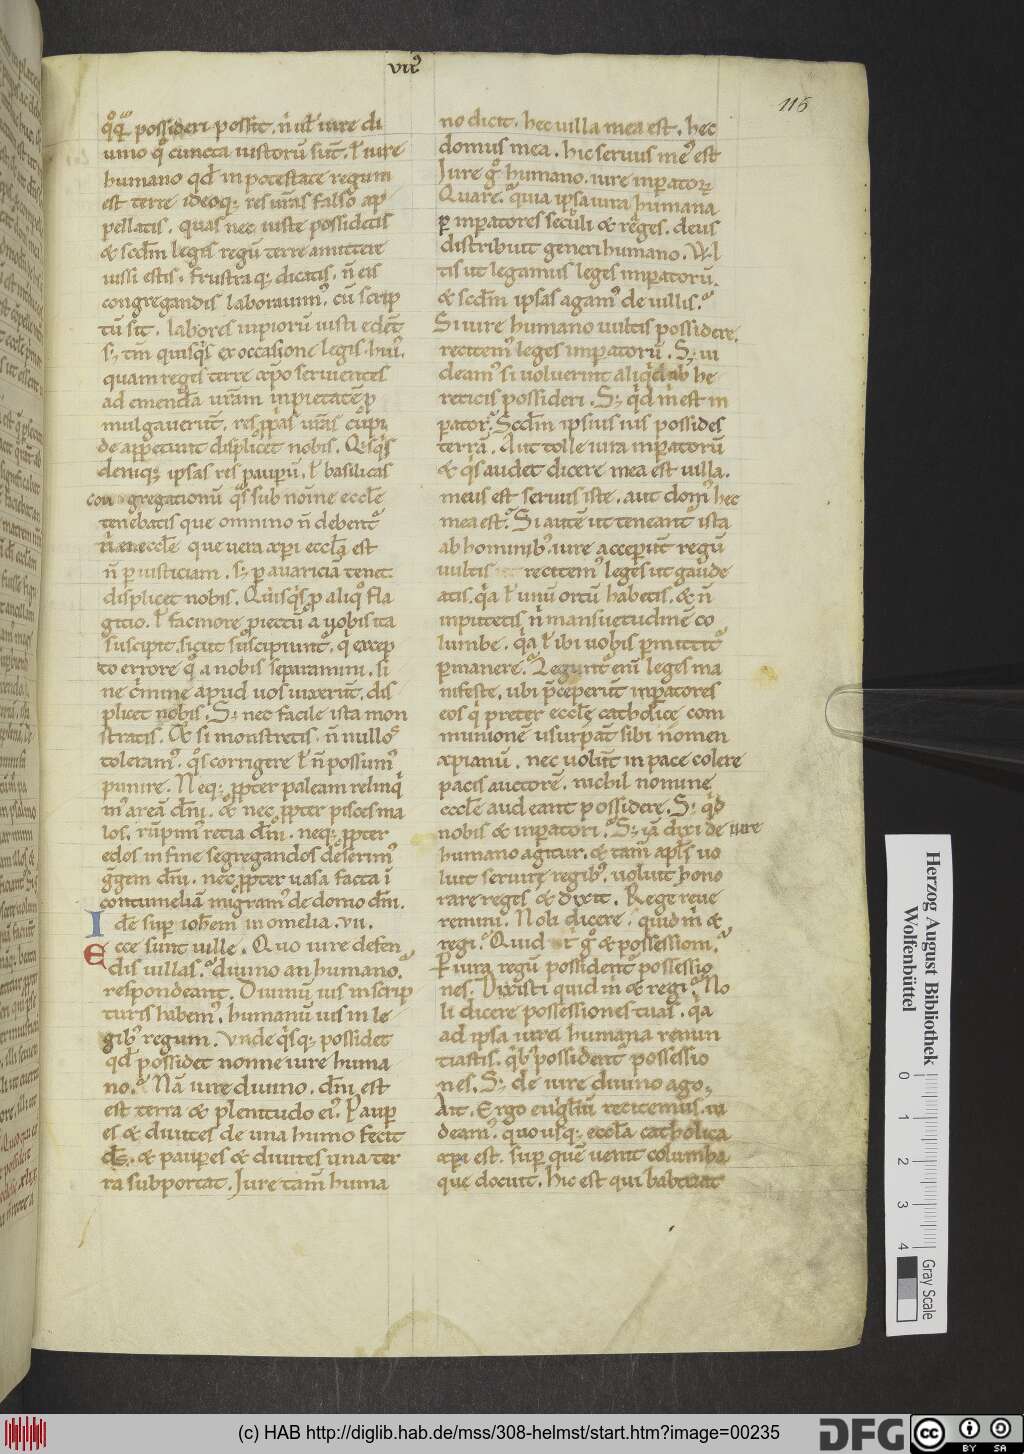 115
possideri possit. nisi ul iure di
uino q̄ cuncta iustorū sūt. ł iure
humano qd in potestate regum
est terre ideoq; res uras falso ap
pellatis. quas nec iuste possidetis
& scdm leges regū terre amittere
iussi estis. frustra q; dicatis. n̄ eis
congregandis laborauim᾽. cū scrip
tū sit. labores inpiorū iusti edēt
S; tm̄ quisq̇s ex occasione legis. hui᾽.
quam reges terre xp̄o seruientes
ad emendā uram inpietatē p
mulgauerūt. res pp̄as uras cupi
de appetunt displicet nobis. Qisq̇s
deniq; ipsas res paupū. ł basilicas
congregationū q̄s sub noīne eccłe
tenebatis que omnino n̄ debent᾽
eccłe que uera xp̄i eccła est
n̄ p iusticiam. s; p auariciā tenet
displicet nobis. Quisq̇s p aliq᾽ fla
gitio. ł facinore piectū a uobis ita
suscipit. sicut suscipiunt᾽. q̇ excep
to errore q᾽ a nobis separamini. si
ne c̄mine apud uos uixerūt. dis
plicet nobis. S; nec facile ista mon
stratis. & si monstretis. n̄ nullos
toleram᾽. q᾽s corrigere ł n̄ possum᾽
punire. Neq; ppter paleam relinq̇
m᾽ areā dn̄i. & nec ppter pisces ma
los. rūpim᾽ retia dn̄i. neq; ppter
edos in fine segregandos deserim᾽
g̊gem dn̄i. nec ppter uasa facta ī
contumeliā migram᾽ de domo dn̄i.
Idē sup iohem in omelia. vii.
Ecce sunt uille. Quo iure defen
dis uillas. diuino an humano.
respondeant. Diuinū ius in scrip
turis habem᾽. humanū ius in le
gib᾽ regum. Vnde q̇sq; possidet
qd possidet nonne iure huma
no. Nā iure diuino. dn̄i est
est terra & plenitudo ei᾽. Paup
es & diuites de una humo fecit
ds̄. & paupes & diuites una ter
ra subportat. Iure tam̄ huma
no dicit. hec uilla mea est. hec
domus mea. hic seruus me᾽ est
Iure g᾽ humano. iure inpator
Quare. quia ipsa iura humana
p inpatores seculi & reges. deus
distribuit generi humano. W
tis ut legamus leges inpatorū.
& scdm ipsas agam᾽ de uillis.
Si iure humano uultis possidere.
recitem᾽ leges inpatorū. S; ui
deam᾽ si uoluerint aliq̇d ab he
reticis possideri. S; q̇d m̄ est in
pator. Scdm ipsius ius possides
terrā. Aut tolle iura inpatorū
& q̇s audet dicere mea est uilla.
meus est seruus iste. aut dom᾽ hec
mea est. Si autē ut teneant᾽ ista
ab hominib᾽ iure acceperūt regū
uultis recitem᾽ leges ut gaude
atis. q̇a ł unū ortū habetis. & n̄
inputetis n̄ mansuetudinē co
lumbe. q̇a ł ibi uobis pmittit᾽
pmanere. Legunt᾽ eni leges ma
nifeste. ubi p̄ceperūt inpatores
eos q̇ preter eccłe catholice com
munionē usurpāt sibi nomen
xp̄ianū. nec uolūt in pace colere
pacis auctorē. nichil nomine
eccłe audeant possidere. S; q̇d
nobis & inpatori. S; iā dixi de iure
humano agitur. & tam̄ apls uo
luit seruire regib᾽. uoluit hono
rare reges & dixit. Rege reue
remini. Noli dicere quid m̄ &
regi. Quid t̄ g᾽ & possessioni.
P iura regū possident᾽ possessio
nes. Dixisti quid m̄ & regi. No
li dicere possessiones tuas. q̇a
ad ipsa iura humana renun
tiastis. q̇b᾽ possident᾽ possessio
nes. S; de iure diuino ago.
Ait. Ergo eug̊lm recitemus. ui
deam᾽. quo usq; eccła catholica
xp̄i est. sup quē uenit columba
que docuit. hic est qui babtizat
Herzog August Bibliothek
Wolfenbüttel
0 1 2 3 4
Gray Scale
(c) HAB http://diglib.hab.de/mss/308-helmst/start.htm?image=00235
DFG
cc BY SA